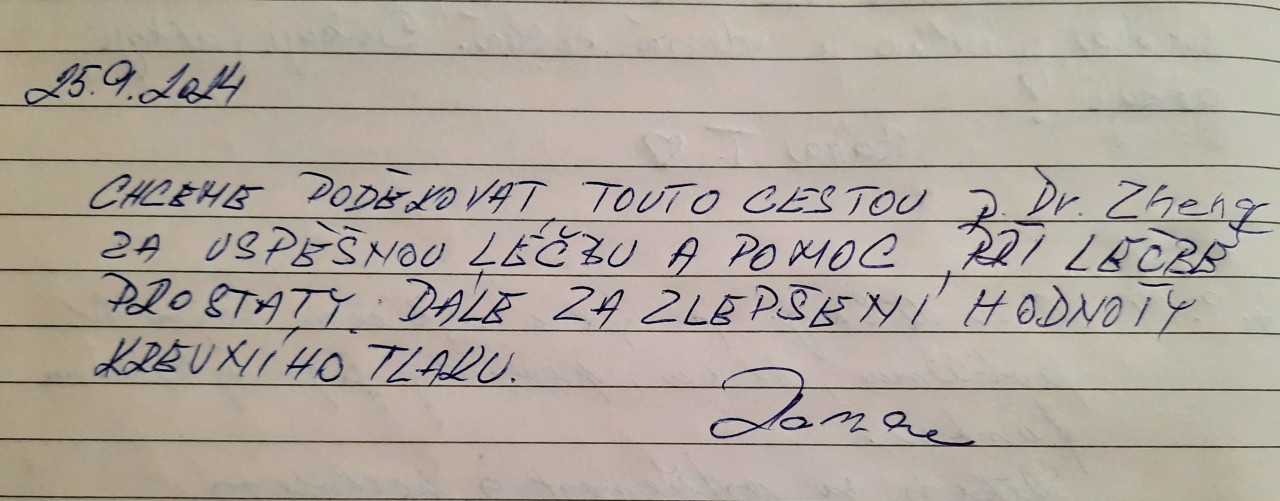 25.9.2024
CHCEME PODĚKOVAT, TOUTO CESTOU P. Dr. Zheng
ZA USPĚŠNOU LÉČBU A POMOC PŘI LÉČBĚ
PROSTATY. DÁLE ZA ZLEPŠENÍ HODNOTY
KREVNÍHO TLAKU.